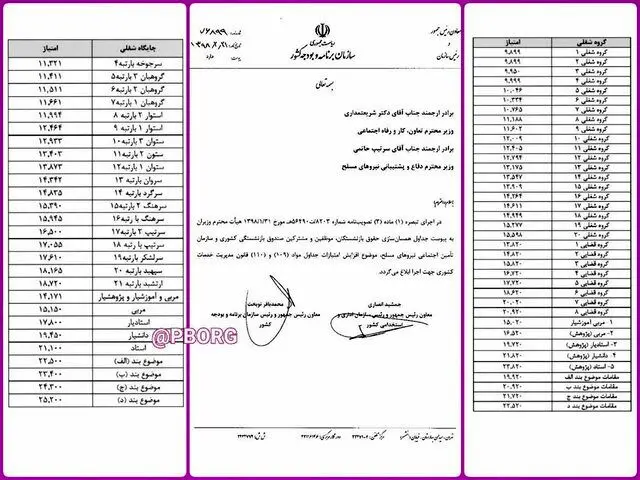 معاون رئیس جمهور
و
رئیس سازمان
ریاست جمهوری
سازمان برنامه و بودجه کشور
۷۶۸۹۹
۱۳۹۸/۲/۲۱
دارد
بسمه تعالی
برادر ارجمند جناب آقای دکتر شریعتمداری
وزیر محترم تعاون، کار و رفاه اجتماعی
برادر ارجمند جناب آقای سرتیپ حاتمی
وزیر محترم دفاع و پشتیبانی نیروهای مسلح
در اجرای تبصره (۱) ماده (۲) تصویب‌نامه شماره ۸۲۰۳/ت۵۶۴۹۰هـ مورخ ۱۳۹۸/۱/۳۱ هیأت محترم وزیران
به پیوست جداول همسان‌سازی حقوق بازنشستگان، موظفین و مشترکین صندوق بازنشستگی کشوری و سازمان
تأمین اجتماعی نیروهای مسلح، موضوع افزایش امتیازات جداول مواد (۱۰۹) و (۱۱۰) قانون مدیریت خدمات
کشوری جهت اجرا ابلاغ می‌گردد.
جمشید انصاری
معاون رئیس جمهور و رئیس سازمان اداری و
استخدامی کشور
محمدباقر نوبخت
معاون رئیس جمهور و رئیس سازمان برنامه و بودجه
کشور
@PBORG
گروه شغلی امتیاز
گروه شغلی ۱ ۹,۸۹۹
گروه شغلی ۲
گروه شغلی ۳ ۹,۹۵۰
گروه شغلی ۴ ۹,۹۹۹
گروه شغلی ۵ ۱۰,۰۴۶
گروه شغلی ۶ ۱۰,۳۳۴
گروه شغلی ۷ ۱۰,۷۶۵
گروه شغلی ۸ ۱۱,۱۸۸
گروه شغلی ۹ ۱۱,۶۰۲
گروه شغلی ۱۰ ۱۲,۰۰۹
گروه شغلی ۱۱ ۱۲,۴۰۵
گروه شغلی ۱۲ ۱۲,۷۹۴
گروه شغلی ۱۳ ۱۳,۱۷۵
گروه شغلی ۱۴ ۱۳,۵۴۷
گروه شغلی ۱۵ ۱۳,۹۰۹
گروه شغلی ۱۶ ۱۴,۲۶۴
گروه شغلی ۱۷ ۱۴,۶۱۱
گروه شغلی ۱۸ ۱۴,۹۴۹
گروه شغلی ۱۹ ۱۵,۲۷۷
گروه شغلی ۲۰ ۱۵,۵۹۸
گروه قضایی ۱ ۱۳,۸۲۰
گروه قضایی ۲
گروه قضایی ۳
گروه قضایی ۴
گروه قضایی ۵
گروه قضایی ۶
گروه قضایی ۷
گروه قضایی ۸
۱- مربی آموزشیار ۱۵,۰۲۰
۲- مربی (پژوهش) ۱۶,۵۲۰
۳- استادیار (پژوهش) ۱۹,۷۲۰
۴- دانشیار (پژوهش) ۲۱,۸۲۰
۵- استاد (پژوهش) ۲۳,۸۲۰
مقامات موضوع بند الف ۱۹,۹۲۰
مقامات موضوع بند ب ۲۰,۹۲۰
مقامات موضوع بند ج ۲۱,۷۲۰
مقامات موضوع بند د ۲۲,۵۲۰
جایگاه شغلی امتیاز
سرجوخه یا رتبه۴ ۱۱,۳۲۱
گروهبان ۳ یا رتبه۵ ۱۱,۴۱۱
گروهبان ۲ یا رتبه۶ ۱۱,۵۱۱
گروهبان ۱ یا رتبه۷ ۱۱,۶۶۱
استوار ۲ یا رتبه ۸ ۱۱,۹۹۴
استوار ۱ یا رتبه ۹ ۱۲,۴۶۴
ستوان ۳ یا رتبه۱۰ ۱۲,۹۳۳
ستون ۲ یا رتبه۱۱ ۱۳,۴۰۲
ستوان ۱ یا رتبه۱۲ ۱۳,۸۷۳
سروان یا رتبه ۱۳ ۱۴,۳۴۲
سرگرد یا رتبه ۱۴ ۱۴,۸۳۵
سرهنگ ۲ یا رتبه۱۵ ۱۵,۳۹۰
سرهنگ یا رتبه۱۶ ۱۵,۹۴۵
سرتیپ ۲ یا رتبه ۱۷ ۱۶,۵۰۰
سرتیپ یا رتبه ۱۸ ۱۷,۰۵۵
سرلشگر یا رتبه۱۹ ۱۷,۶۱۰
سپهبد یا رتبه ۲۰ ۱۸,۱۶۵
ارتشبد یا رتبه ۲۱ ۱۸,۷۲۰
مربی و آموزشیار و پژوهشیار ۱۴,۱۷۱
مربی ۱۵,۱۵۰
استادیار ۱۷,۸۰۰
دانشیار ۱۹,۴۵۰
استاد ۲۱,۱۰۰
موضوع بند (الف) ۲۲,۵۰۰
موضوع بند (ب) ۲۳,۴۰۰
موضوع بند (ج) ۲۴,۳۰۰
موضوع بند (د) ۲۵,۲۰۰